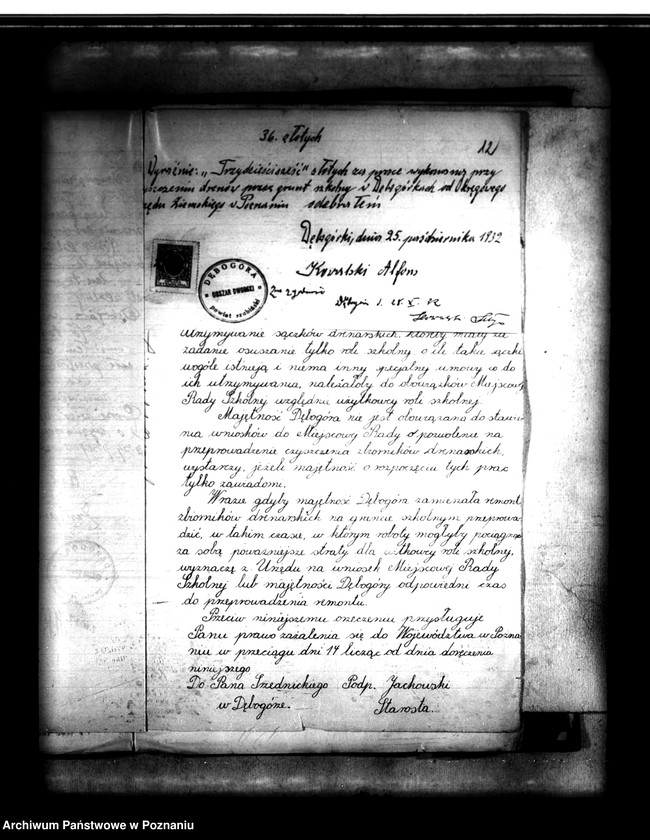 36. złotych
12
Wyraźnie: „Trzydzieścisześć" złotych za prace wykonane przy
czyszczeniu drenów przez grunt szkolny w Dębogórkach od Okręgowego
Urzędu Ziemskiego w Poznaniu odebrałem
Dębogórki, dnia 25. października 1932
Kowalski Alfons
DĘBOGÓRA
OBSZAR DWORSKI
powiat szubiński
Za zgodność
utrzymywanie sączków drenarskich, któreby miały za
zadanie osuszanie tylko role szkolny, o ile takie sączki
wogóle istnieją i niema inny specjalny umowy co do
ich utrzymywania, należałoby do obowiązków Miejscowy
Rady Szkolnej względnie użytkowcy role szkolnej.
Majętność Dębogóra nie jest obowiązana do stawia-
nia wniosków do Miejscowy Rady o pozwolenie na
przeprowadzenie czyszczenia zbiorników drenarskich,
wystarczy, jeżeli majętność o rozpoczęciu tych prac
tylko zawiadomi.
Wrazie gdyby majętność Dębogóra zamierzała remont
zbiorników drenarskich na gruncie szkolnym przeprowa-
dzić, w takim czasie, w którym roboty mogłyby pociągnąć
za sobą poważniejsze straty dla użytkowcy role szkolny,
wyznaczę z Urzędu na wniosek Miejscowej Rady
Szkolnej lub majętności Dębogóry odpowiedni czas
do przeprowadzenia remontu.
Przeciw niniejszemu orzeczeniu przysługuje
Panu prawo zażalenia się do Województwa w Pozna-
niu w przeciągu dni 14 licząc od dnia doręczenia
niniejszego
Do Pana Średnickiego Podp. Jackowski
w Dębogórze. Starosta.
Archiwum Państwowe w Poznaniu